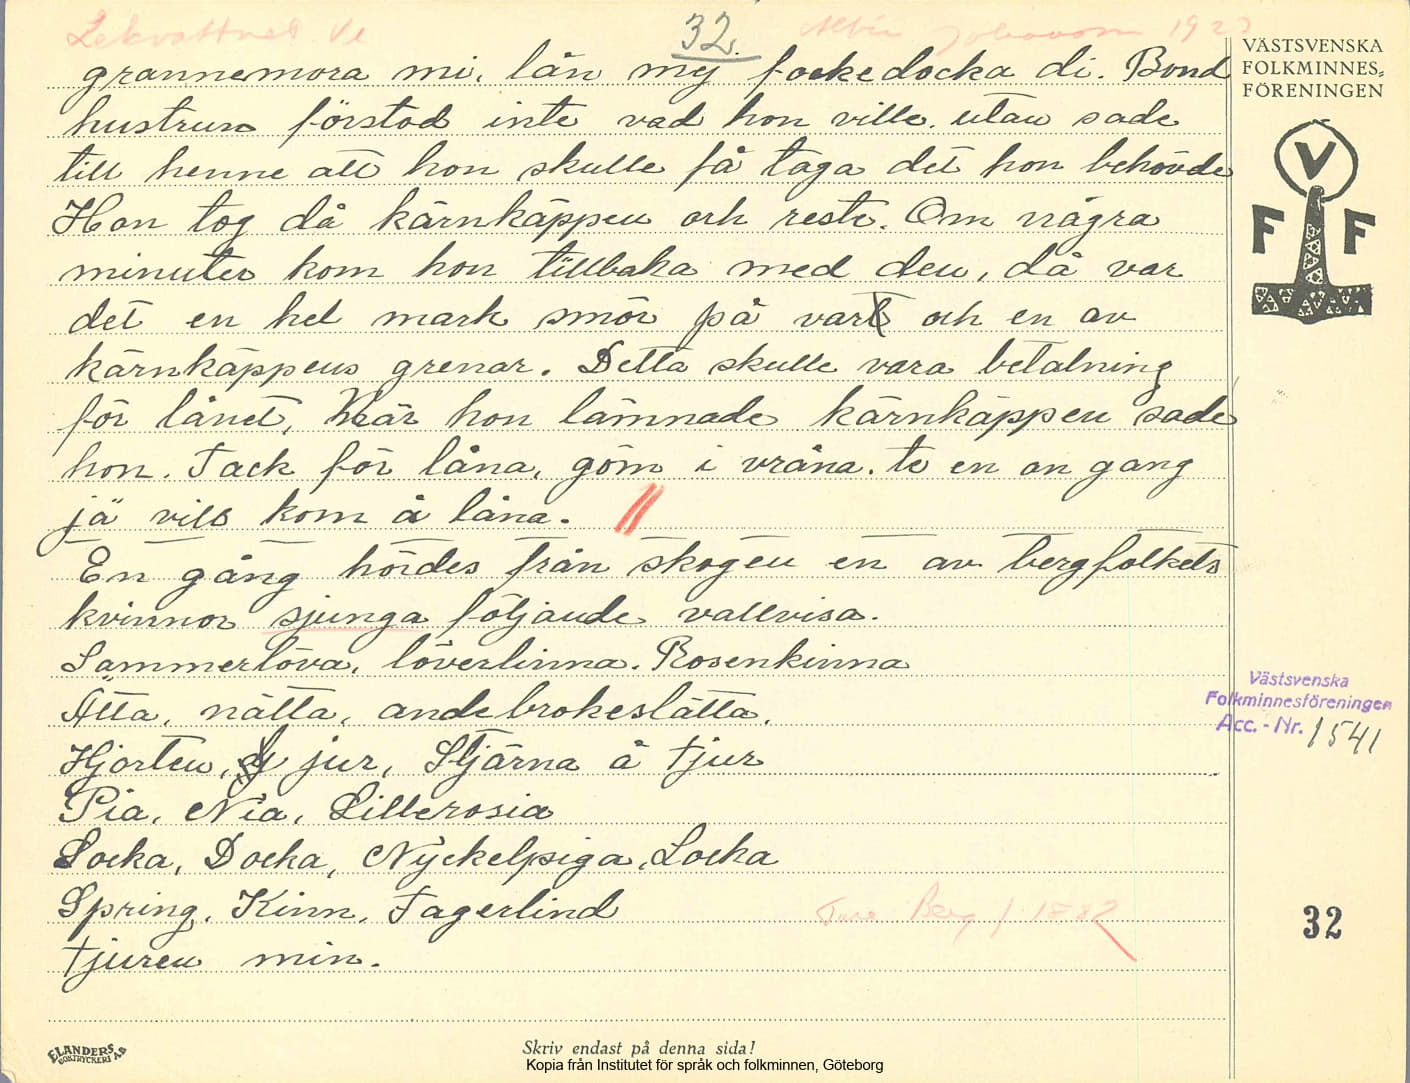 Lekvattnet Ve
32.
Albin Johansson 1927
grannemora mi, lån mej fockedocka di. Bond
hustrun förstod inte vad hon ville. utan sade
till henne att hon skulle få taga det hon behövde
Hon tog då kärnkäppen och reste. Om några
minuter kom hon tillbaka med den, då var
det en hel mark smör på vart och en av
kärnkäppens grenar. Detta skulle vara betalning
för lånet, När hon lämnade kärnkäppen sade
hon. Tack för låna, göm i vråna. te en an gang
jä vill kom å låna.
En gång hördes från skogen en av bergfolkets
kvinnor sjunga följande vallvisa.
Sammerlöva, löverlinna. Rosenkinna
Åtta, nätta, andebrokeslätta,
Hjorten, jur, Stjärna å tjur
Pia, Nia, Lillerosia
Socka, Docka, Nyckelpiga, Locka
Spring, Kinn, Fagerlind
tjuren min.
Berg f. 1882
VÄSTSVENSKA
FOLKMINNES-
FÖRENINGEN
V
F F
Västsvenska
Folkminnesföreningen
Acc. - Nr. 1541
32
ELANDERS
BOKTRYCKERI AB
Skriv endast på denna sida!
Kopia från Institutet för språk och folkminnen, Göteborg